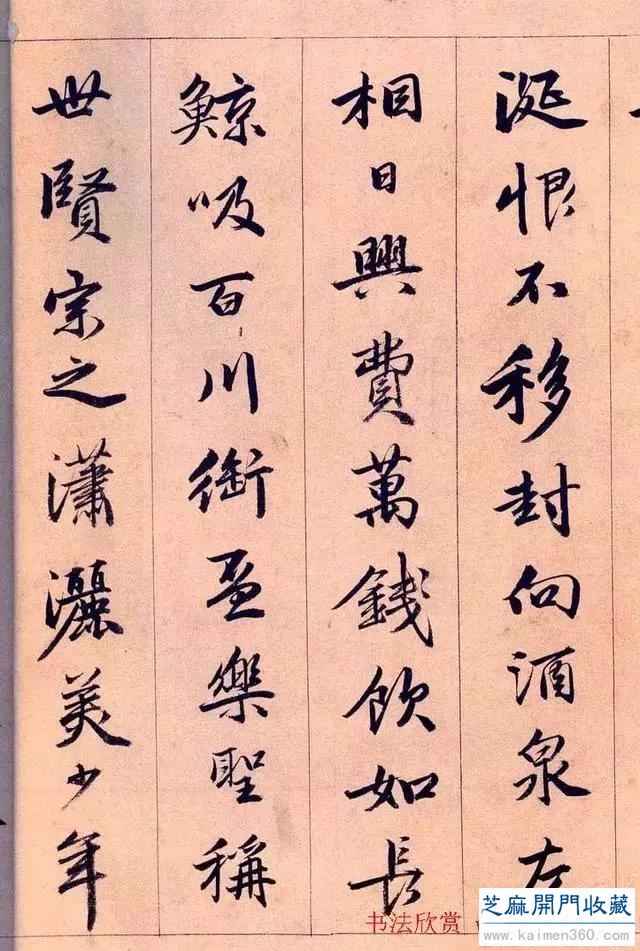 涎恨不移封向酒泉左
相日興費萬錢飲如長
鯨吸百川銜盃樂聖稱
世賢宗之瀟灑美少年
书法欣赏
芝麻開門收藏
www.kaimen360.com